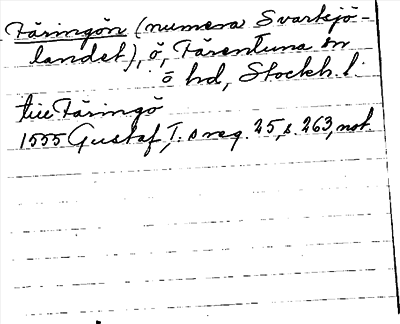 Färingön (numera Svartsjö-
landet), ö, Färentuna sn
o hd, Stockh. l.
till Färingö
1555 Gustaf I:s reg. 25, s. 263, not.